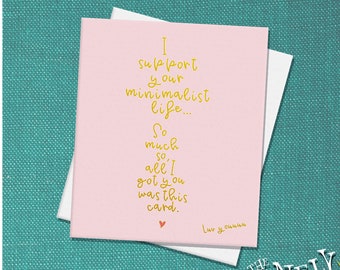 I
support
your
minimalist
life...
So
much
so,
all I
got you
was this
card.
Luv youuuu
THE